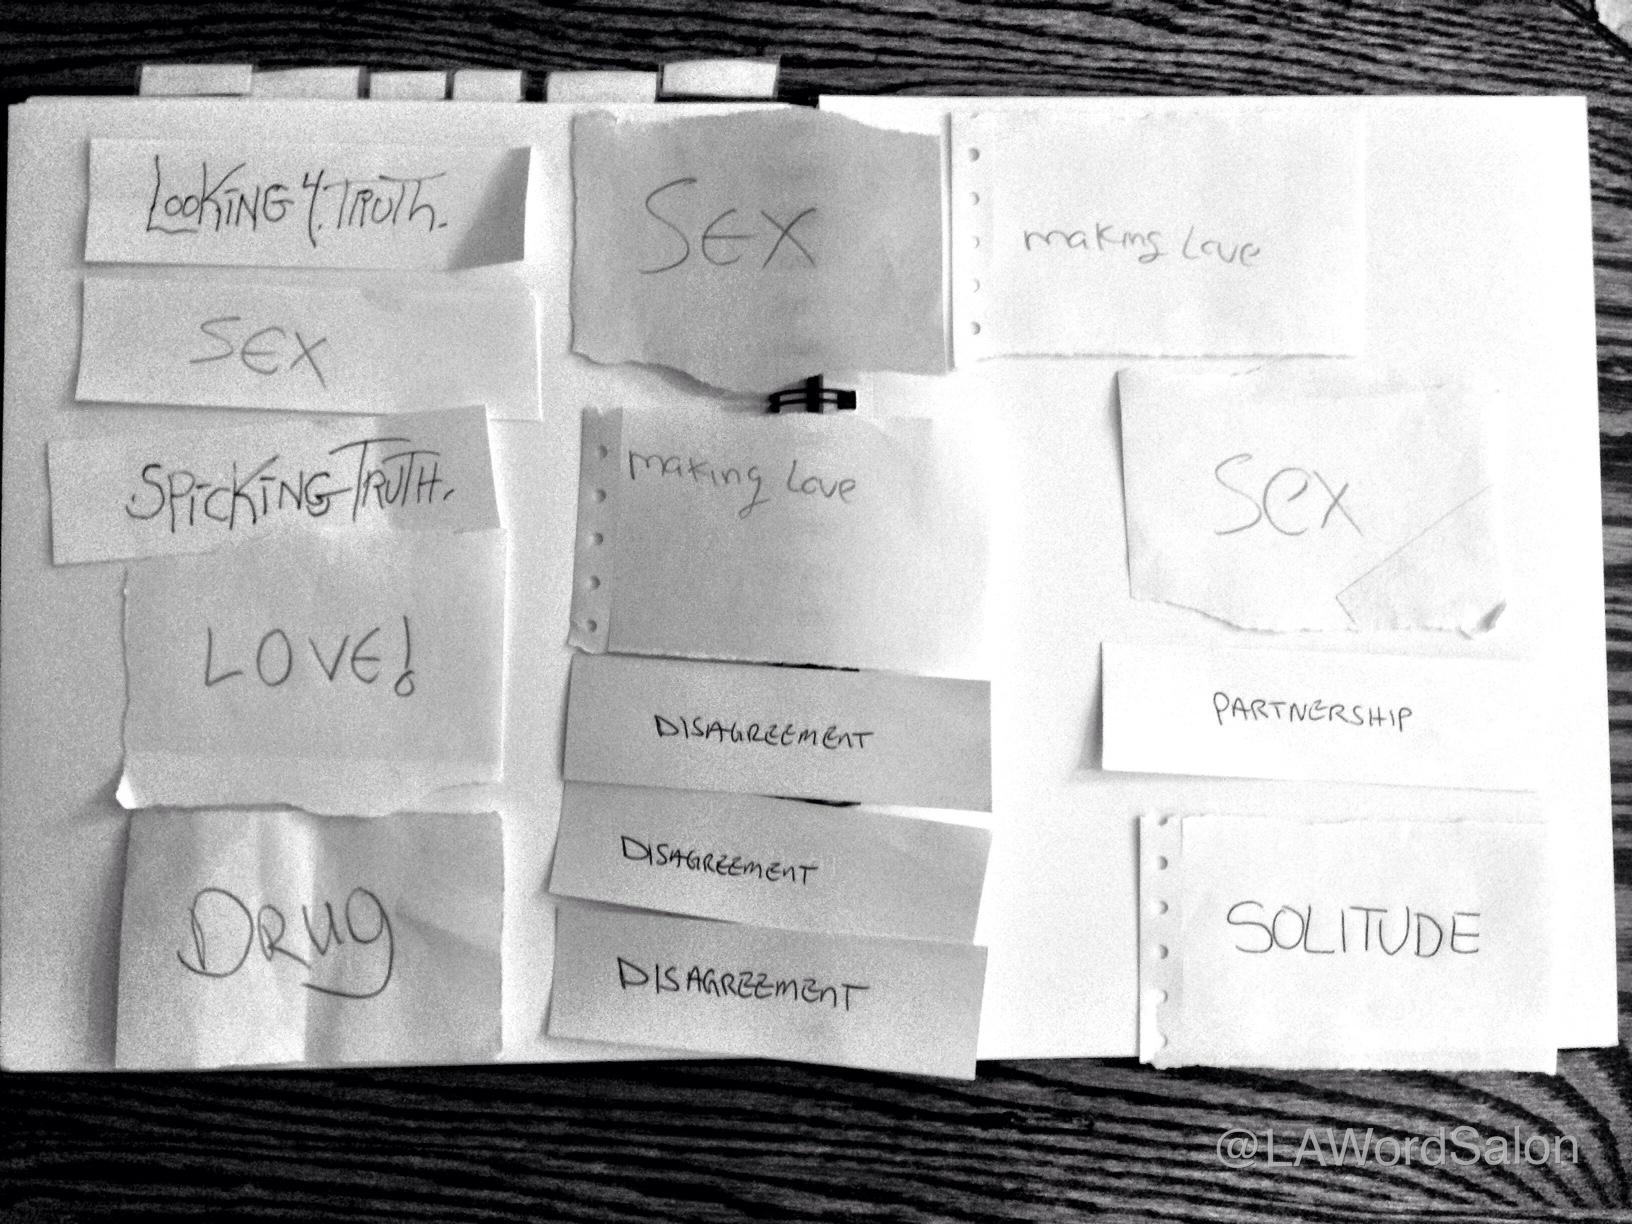 LOOKING 4. TRUTH.
SEX
SPICKING TRUTH.
LOVE!
DRUG
SEX
making Love
DISAGREEMENT
DISAGREEMENT
DISAGREEMENT
making Love
SEX
PARTNERSHIP
SOLITUDE
@LAWordSalon